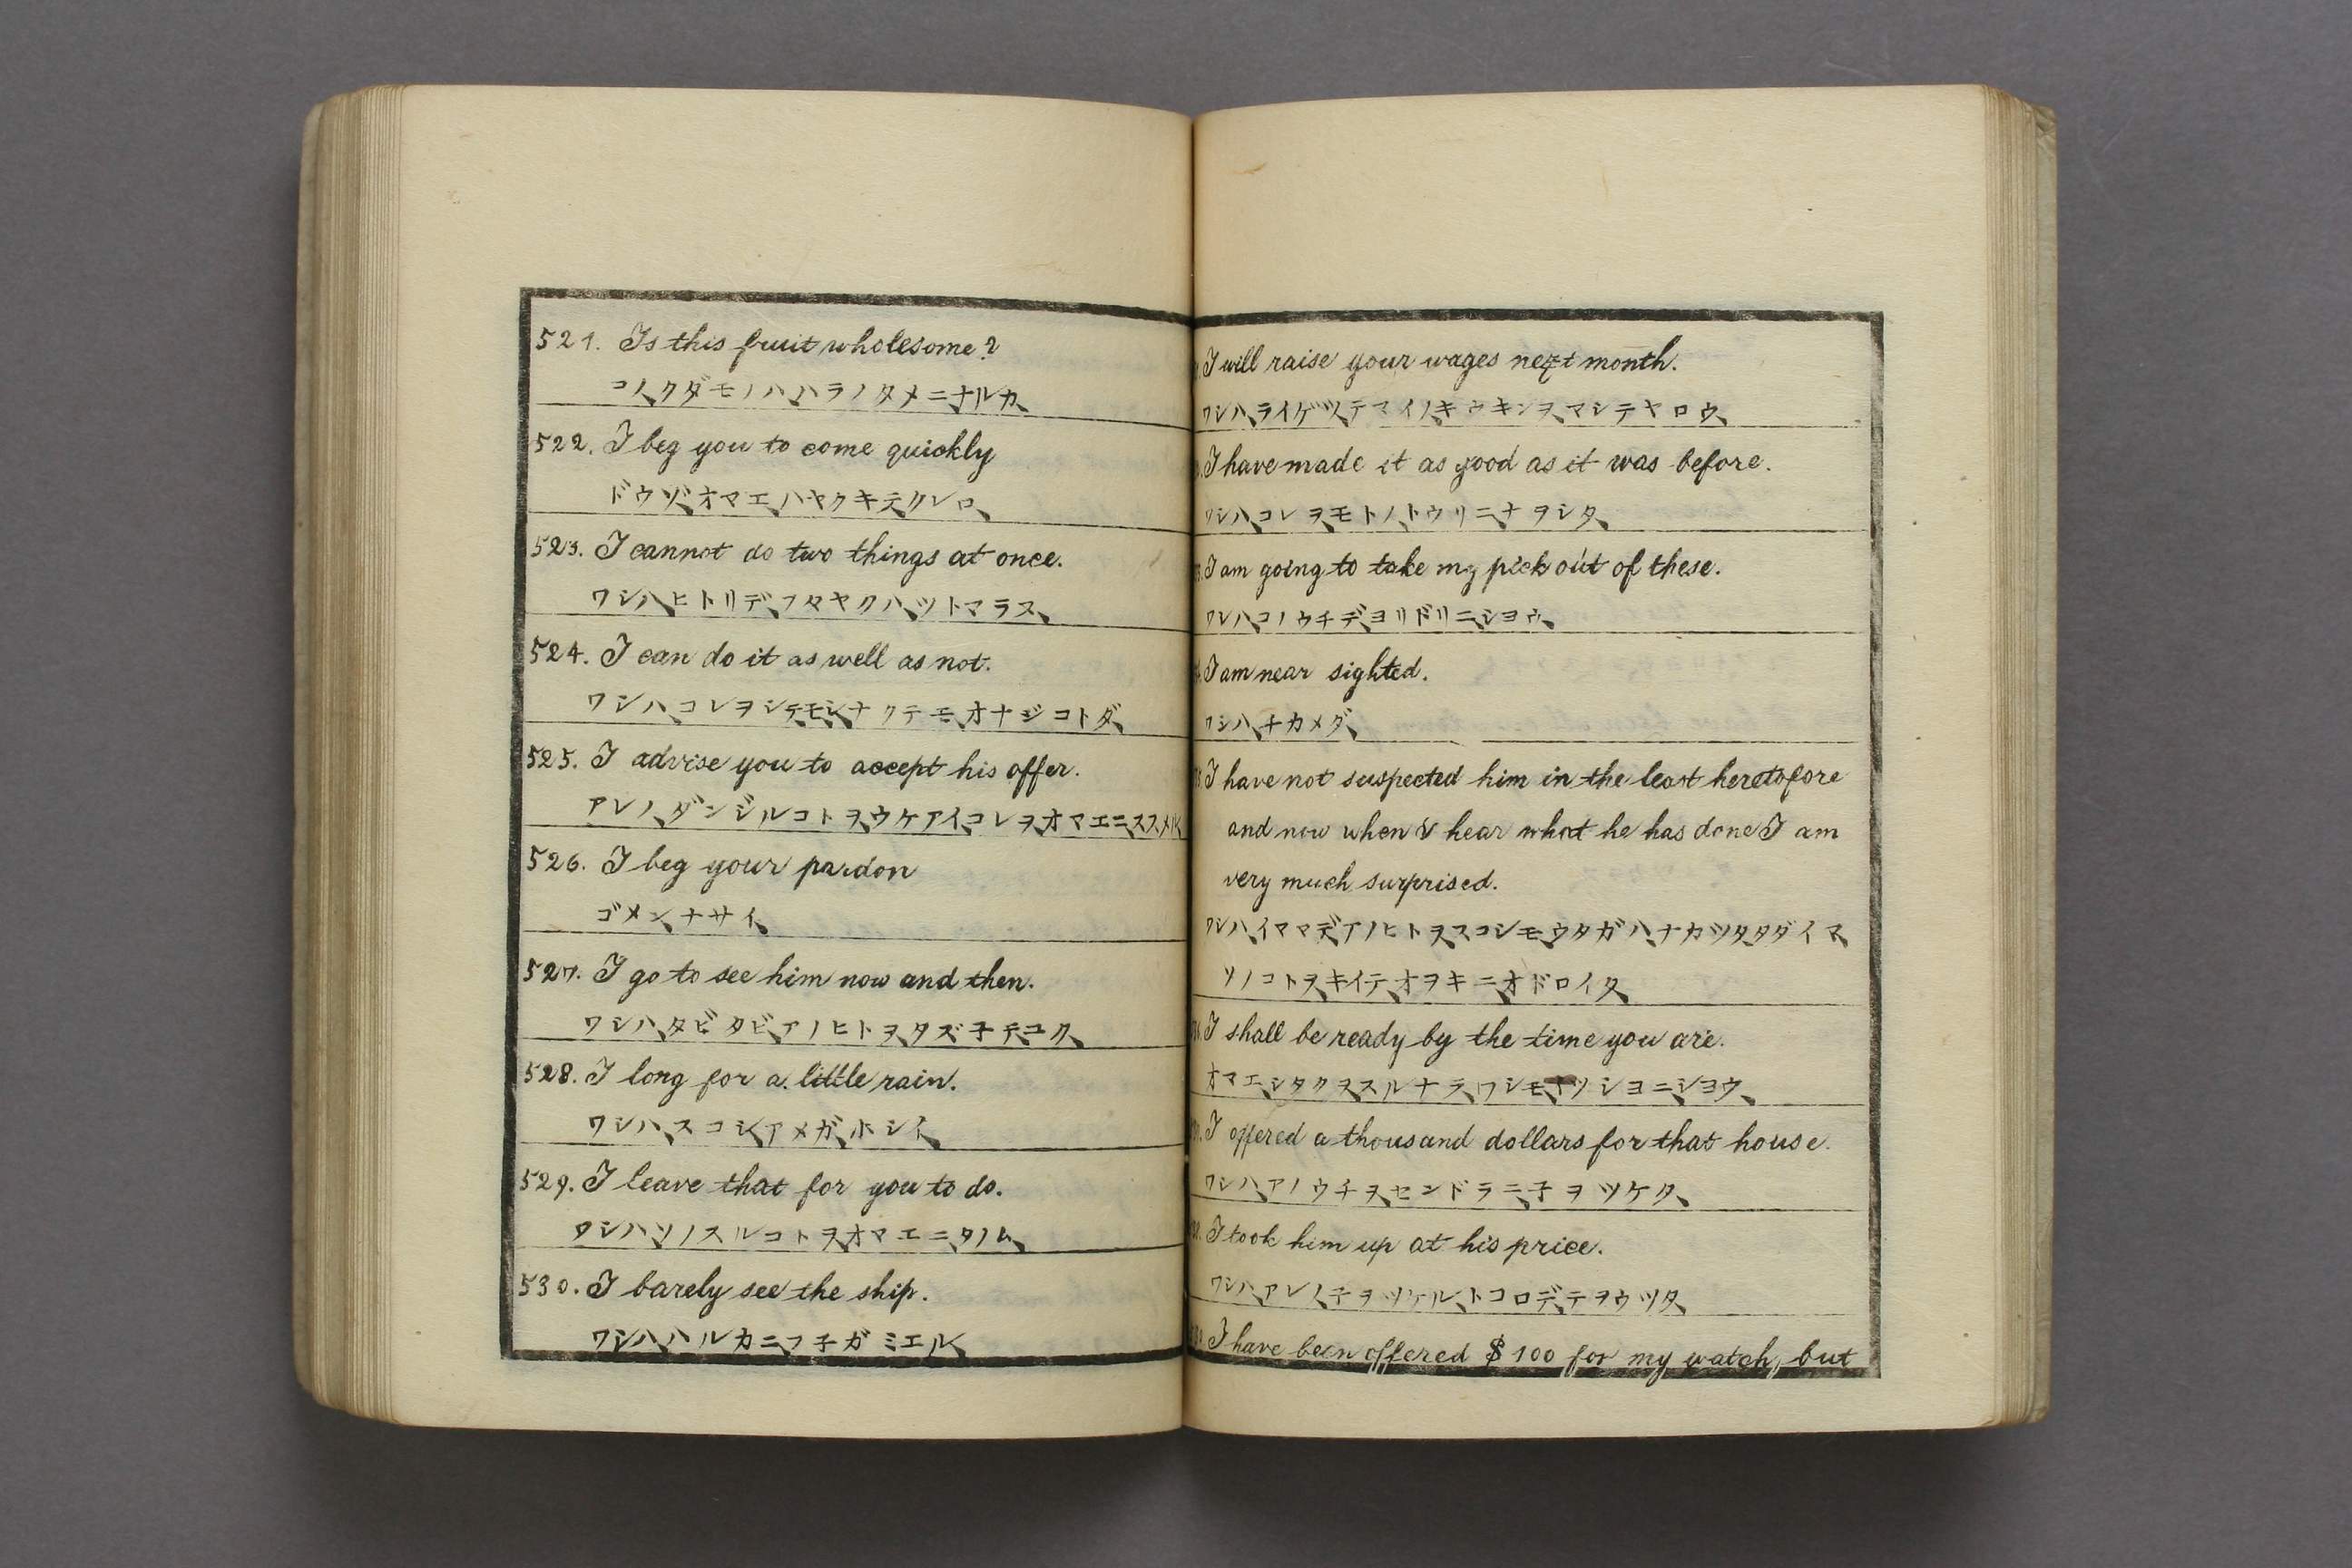 521. Is this fruit wholesome?
コノ、クダモノハ、ハラノタメニナルカ、
522. I beg you to come quickly
ドウゾ、オマエ、ハヤクキテ、クレロ、
523. I cannot do two things at once.
ワシハ、ヒトリデ、フタヤクハ、ツトマラヌ、
524. I can do it as well as not.
ワシハ、コレヲシテモ、シナクテモ、オナジコトダ、
525. I advise you to accept his offer.
アレノ、ダンジルコトヲ、ウケアイ、コレヲ、オマエニ、ススメル
526. I beg your pardon
ゴメン、ナサイ、
527. I go to see him now and then.
ワシハ、タビタビ、アノヒトヲ、タズ子テ、ユク、
528. I long for a little rain.
ワシハ、スコシ、アメガ、ホシイ、
529. I leave that for you to do.
ワシハ、ソノスルコトヲ、オマエニ、タノム、
530. I barely see the ship.
ワシハ、ハルカニ、フ子ガミエル、
I will raise your wages next month.
ワシハ、ライゲツ、テマイノ、キウキンヲ、マシテヤロウ、
I have made it as good as it was before.
ワシハ、コレヲ、モトノ、トウリニ、ナヲシタ、
I am going to take my pick out of these.
ワシハ、コノウチデ、ヨリドリニ、シヨウ、
I am near sighted.
ワシハ、チカメダ、
I have not suspected him in the least heretofore
and now when I hear what he has done I am
very much surprised.
ワシハ、イママデ、アノヒトヲ、スコシモ、ウタガハ、ナカツタ、タダイマ、
ソノコトヲ、キイテ、オヲキニ、オドロイタ、
I shall be ready by the time you are.
オマエ、シタクヲ、スルナラ、ワシモ、イツシヨニ、シヨウ、
I offered a thousand dollars for that house.
ワシハ、アノウチヲ、センドラニ、子ヲツケタ、
I took him up at his price.
ワシハ、アレノ、子ヲツケル、トコロデ、テヲウツタ、
I have been offered $ 100 for my watch, but